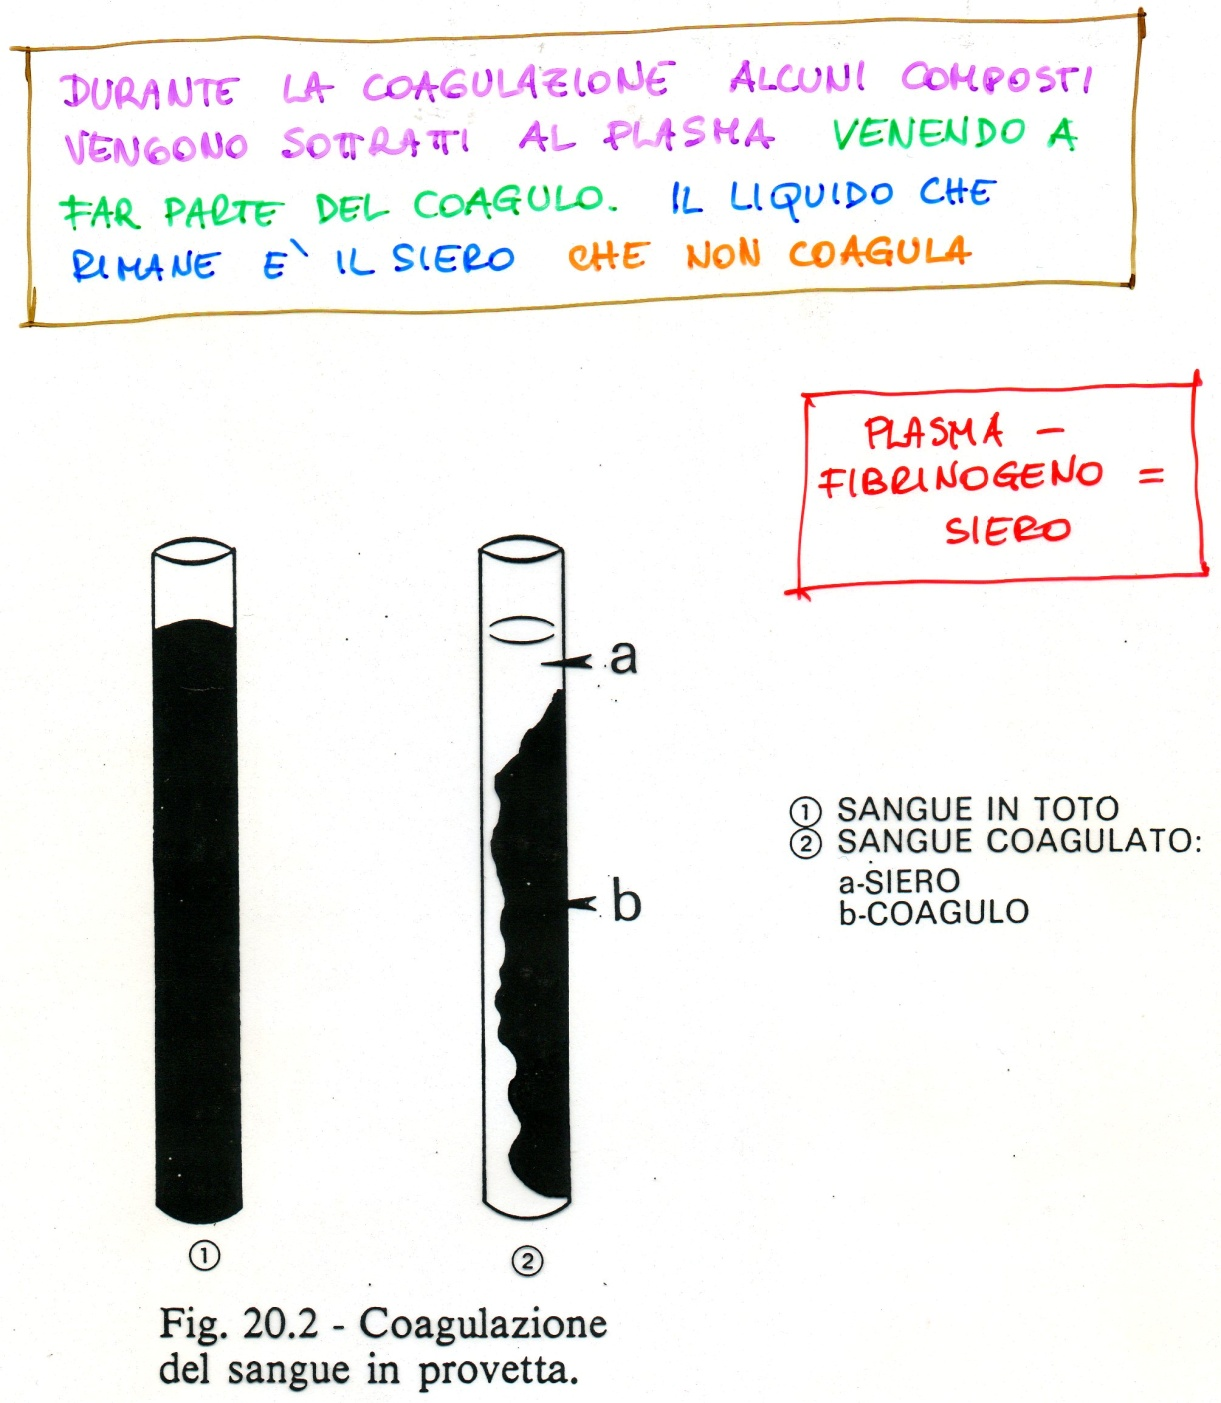 DURANTE LA COAGULAZIONE ALCUNI COMPOSTI
VENGONO SOTTRATTI AL PLASMA VENENDO A
FAR PARTE DEL COAGULO. IL LIQUIDO CHE
RIMANE E` IL SIERO CHE NON COAGULA
PLASMA -
FIBRINOGENO =
SIERO
a
b
① SANGUE IN TOTO
② SANGUE COAGULATO:
a-SIERO
b-COAGULO
① ②
Fig. 20.2 - Coagulazione
del sangue in provetta.